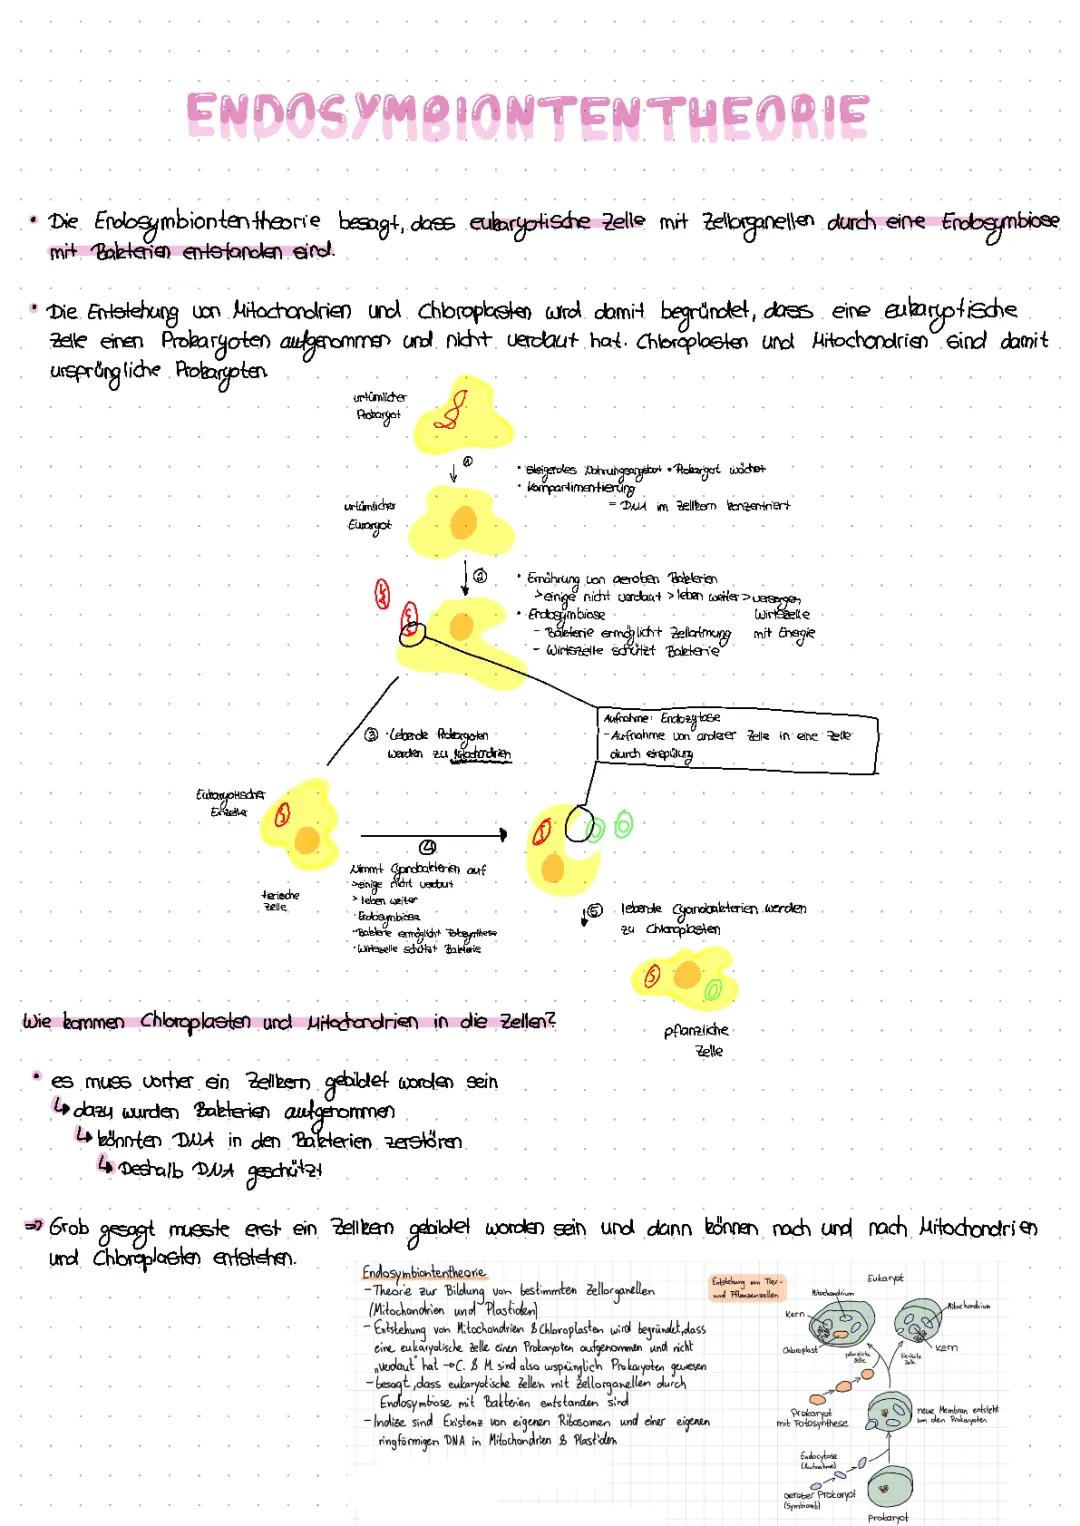 ENDOSYMBIONTENTHEORIE
• Die Endosymbiontentheorie besagt, dass eukaryotische Zelle mit Zellorganellen durch eine Endosymbiose
mit Bakterien entstanden sind.
• Die Entstehung von Mitochondrien und Chloroplasten wird damit begründet, dass eine eukaryotische
Zelle einen Prokaryoten aufgenommen und nicht verdaut hat. Chloroplasten und Mitochondrien sind damit
ursprüngliche Prokaryoten
urtümlicher
Prokaryot
①
• steigendes Nahrungsangebot • Prokaryot wächst
• Kompartimentierung
= DNA im Zellkern konzentriert
urtümlicher
Euraryot
②
• Ernährung von aeroben Bakterien
> einige nicht verdaut > leben weiter > versorgen
Wirtszelle
mit Energie
• Endosymbiose
- Bakterie ermöglicht Zellatmung
- Wirtszelle schützt Bakterie
Aufnahme: Endozytose
- Aufnahme von anderer Zelle in eine Zelle
durch
③ • Lebende Prokaryoten
werden zu Mitochondrien
Eukaryotischer
Einzeller
tierische
Zelle
④
Nimmt Cyanobakterien auf
> einige nicht verdaut
> leben weiter
• Endosymbiose
- Bakterie ermöglicht Fotosynthese
• Wirtszelle schützt Bakterie
⑤ lebende Cyanobakterien werden
zu Chloroplasten
pflanzliche
Zelle
Wie kommen Chloroplasten und Mitochondrien in die Zellen?
• es muss vorher ein Zellkern gebildet worden sein
↳ dazu wurden Bakterien aufgenommen
↳ könnten DNA in den Bakterien zerstören
↳ Deshalb DNA geschützt
⇒ Grob gesagt musste erst ein Zellkern gebildet worden sein und dann können nach und nach Mitochondrien
und Chloroplasten entstehen.
Endosymbiontentheorie
- Theorie zur Bildung von bestimmten Zellorganellen
(Mitochondrien und Plastiden)
- Entstehung von Mitochondrien & Chloroplasten wird begründet, dass
eine eukaryotische Zelle einen Prokaryoten aufgenommen und nicht
„verdaut" hat → C. & M. sind also ursprünglich Prokaryoten gewesen
- besagt, dass eukaryotische Zellen mit Zellorganellen durch
Endosymbiose mit Bakterien entstanden sind
- Indize sind Existenz von eigenen Ribosomen und einer eigenen
ringförmigen DNA in Mitochondrien & Plastiden
Entstehung von Tier-
und Pflanzenzellen
Eukaryot
Mitochondrium
Kern
Chloroplast
pflanzliche
Zelle
tierische
Zelle
Mitochondrium
Kern
Prokaryot
mit Fotosynthese
neue Membran entsteht
um den Prokaryoten
Endocytose
(Aufnahme)
aerober Prokaryot
(Symbiont)
Prokaryot